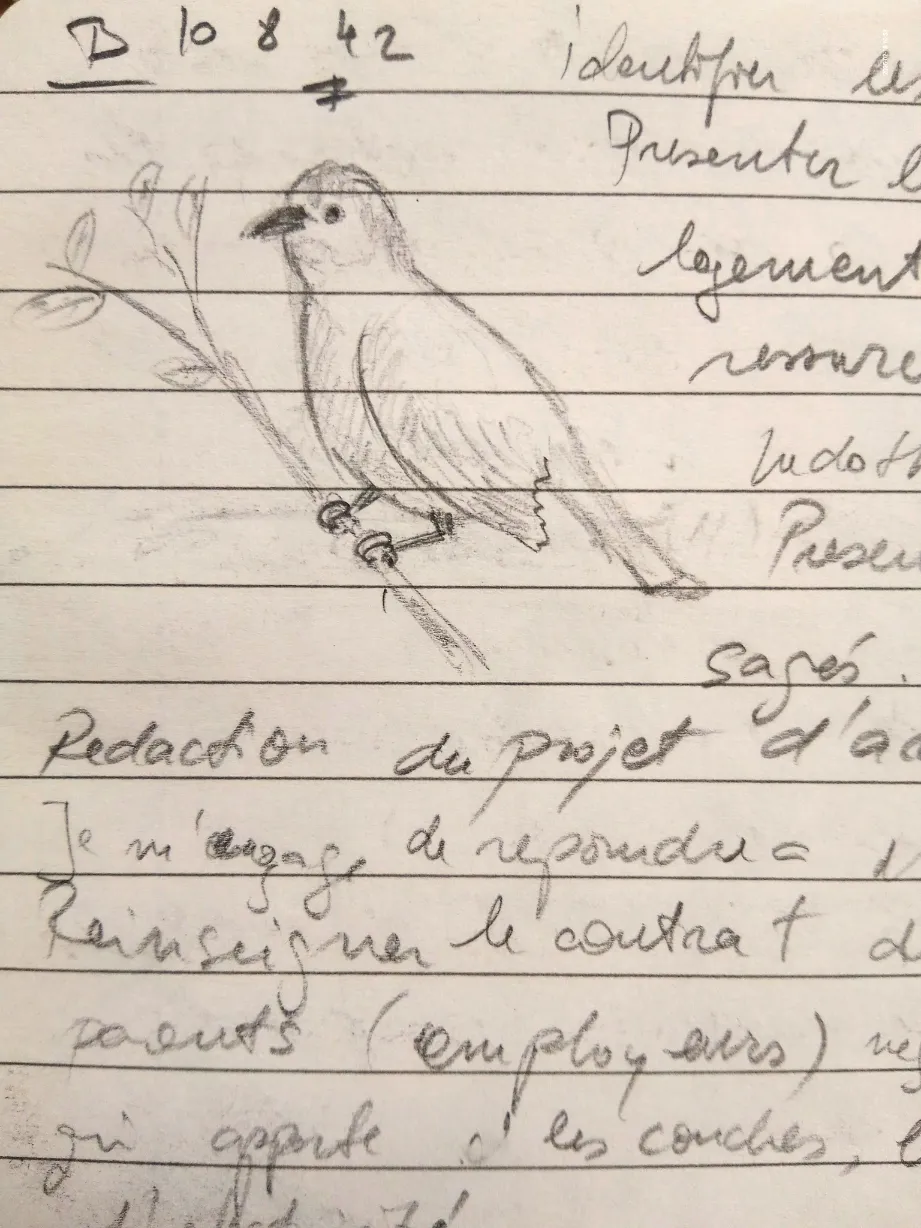 B 10 8 42 identifier les
Presenter l
logement
ressource
ludoth
Presen
sagés.
Redaction du projet d'ac
Je m'engage de repondre a
Reinseigner le contrat d
parents (employeurs)
qui apporte les couches,